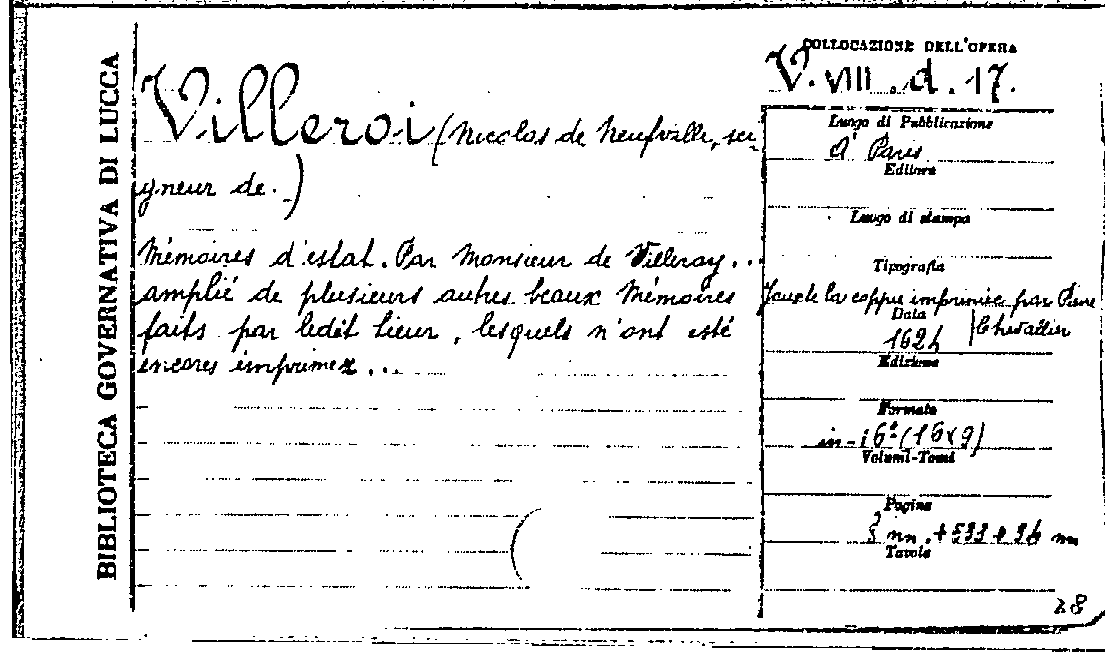 BIBLIOTECA GOVERNATIVA DI LUCCA
Villeroi (Nicolas de Neufville, sei-
gneur de.)
Mémoires d'estat. Par Monsieur de Villeroy...
amplié de plusieurs autres beaux Mémoires
faits par ledit Sieur, lesquels n'ont esté
encores imprimez...
COLLOCAZIONE DELL'OPERA
V. VIII. d. 17.
Luogo di Pubblicazione
A Paris
Editore
Luogo di stampa
Tipografia
Jouxte la coppie imprimée par Pierre
Chevallier
Data
1624
Edizione
Formato
in-16° (16x9)
Volumi-Tomi
Pagine
nn. + 533 +
Tavole
28